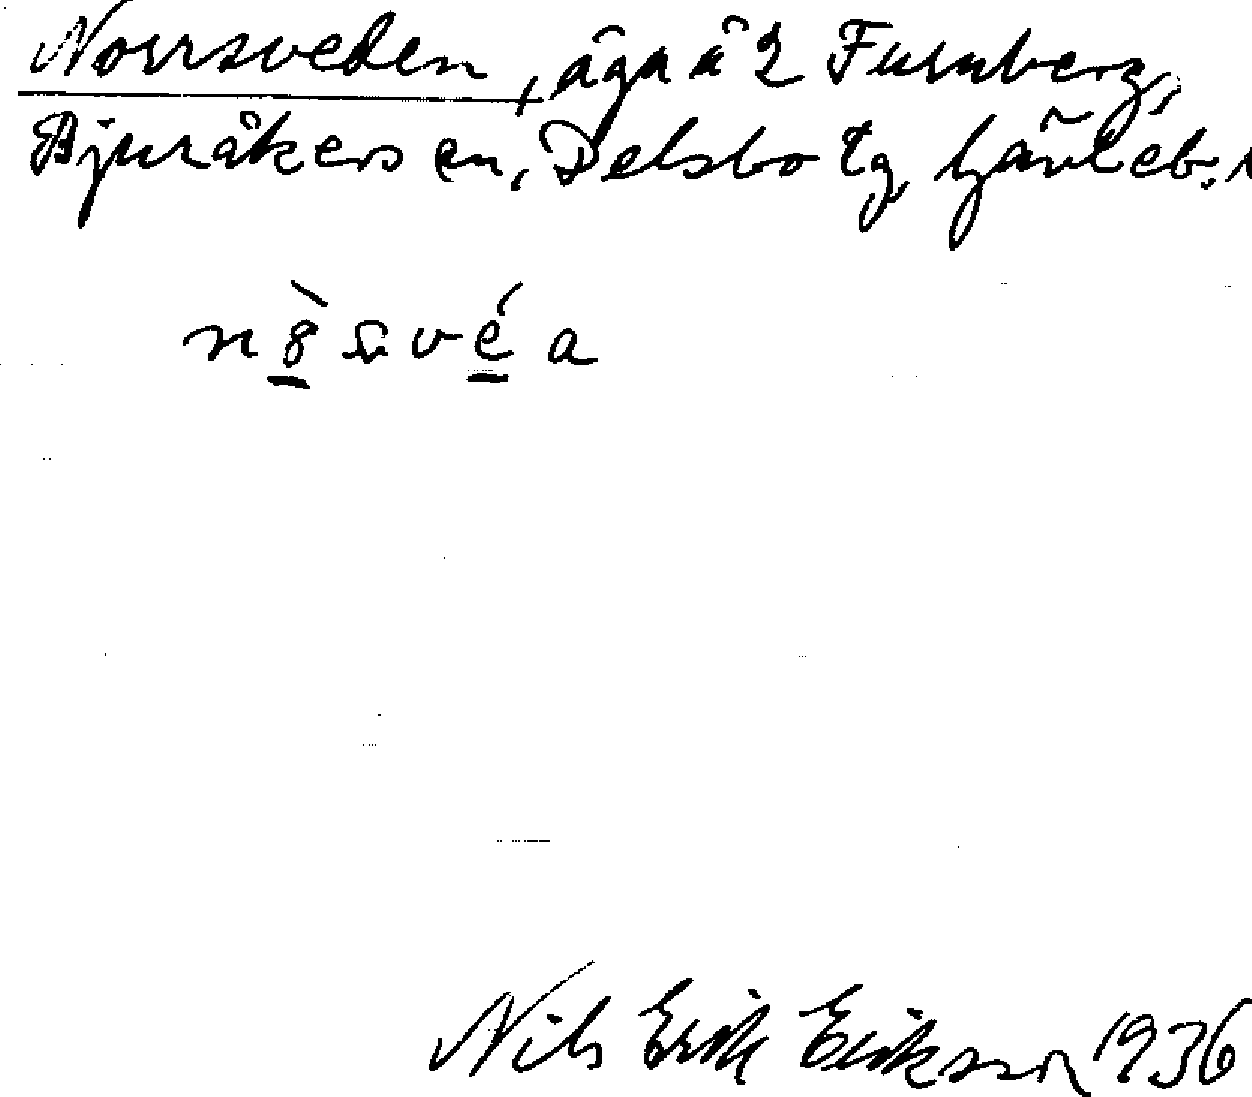 Norrsveden, äga å 2 Furuberg,
Bjuråkers sn, Delsbo tg, Gävleb. l
Nils Erik Eriksson 1936